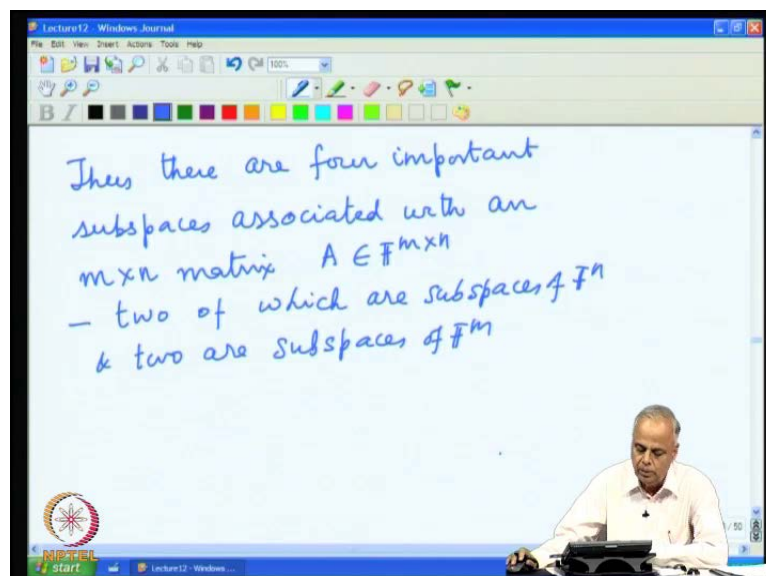 Lecture12 - Windows Journal
File Edit View Insert Actions Tools Help
100%
B I
Thus there are four important
subspaces associated with an
m×n matrix A ∈ F^{m×n}
— two of which are subspaces of F^n
& two are subspaces of F^m
/ 50
NPTEL
start Lecture12 - Windows ...